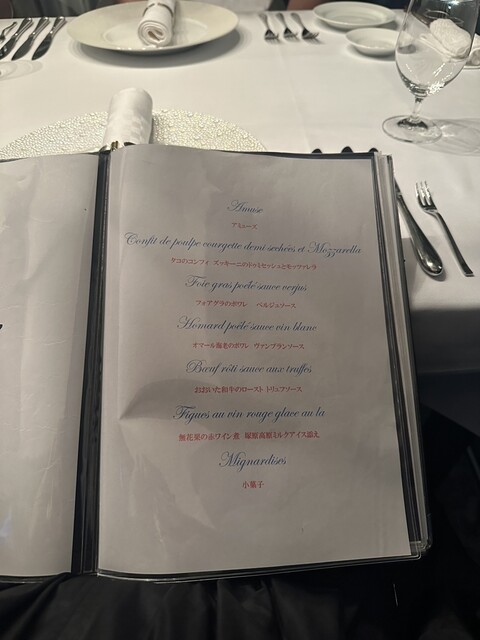 Amuse
アミューズ
Confit de poulpe courgette demi sechées et Mozzarella
タコのコンフィ ズッキーニのドゥミセッシュとモッツァレラ
Foie gras poêlé sauce verjus
フォアグラのポワレ ベルジュソース
Homard poêlé sauce vin blanc
オマール海老のポワレ ヴァンブランソース
Bœuf rôti sauce aux truffes
おおいた和牛のロースト トリュフソース
Figues au vin rouge glace au la
無花果の赤ワイン煮 塚原高原ミルクアイス添え
Mignardises
小菓子